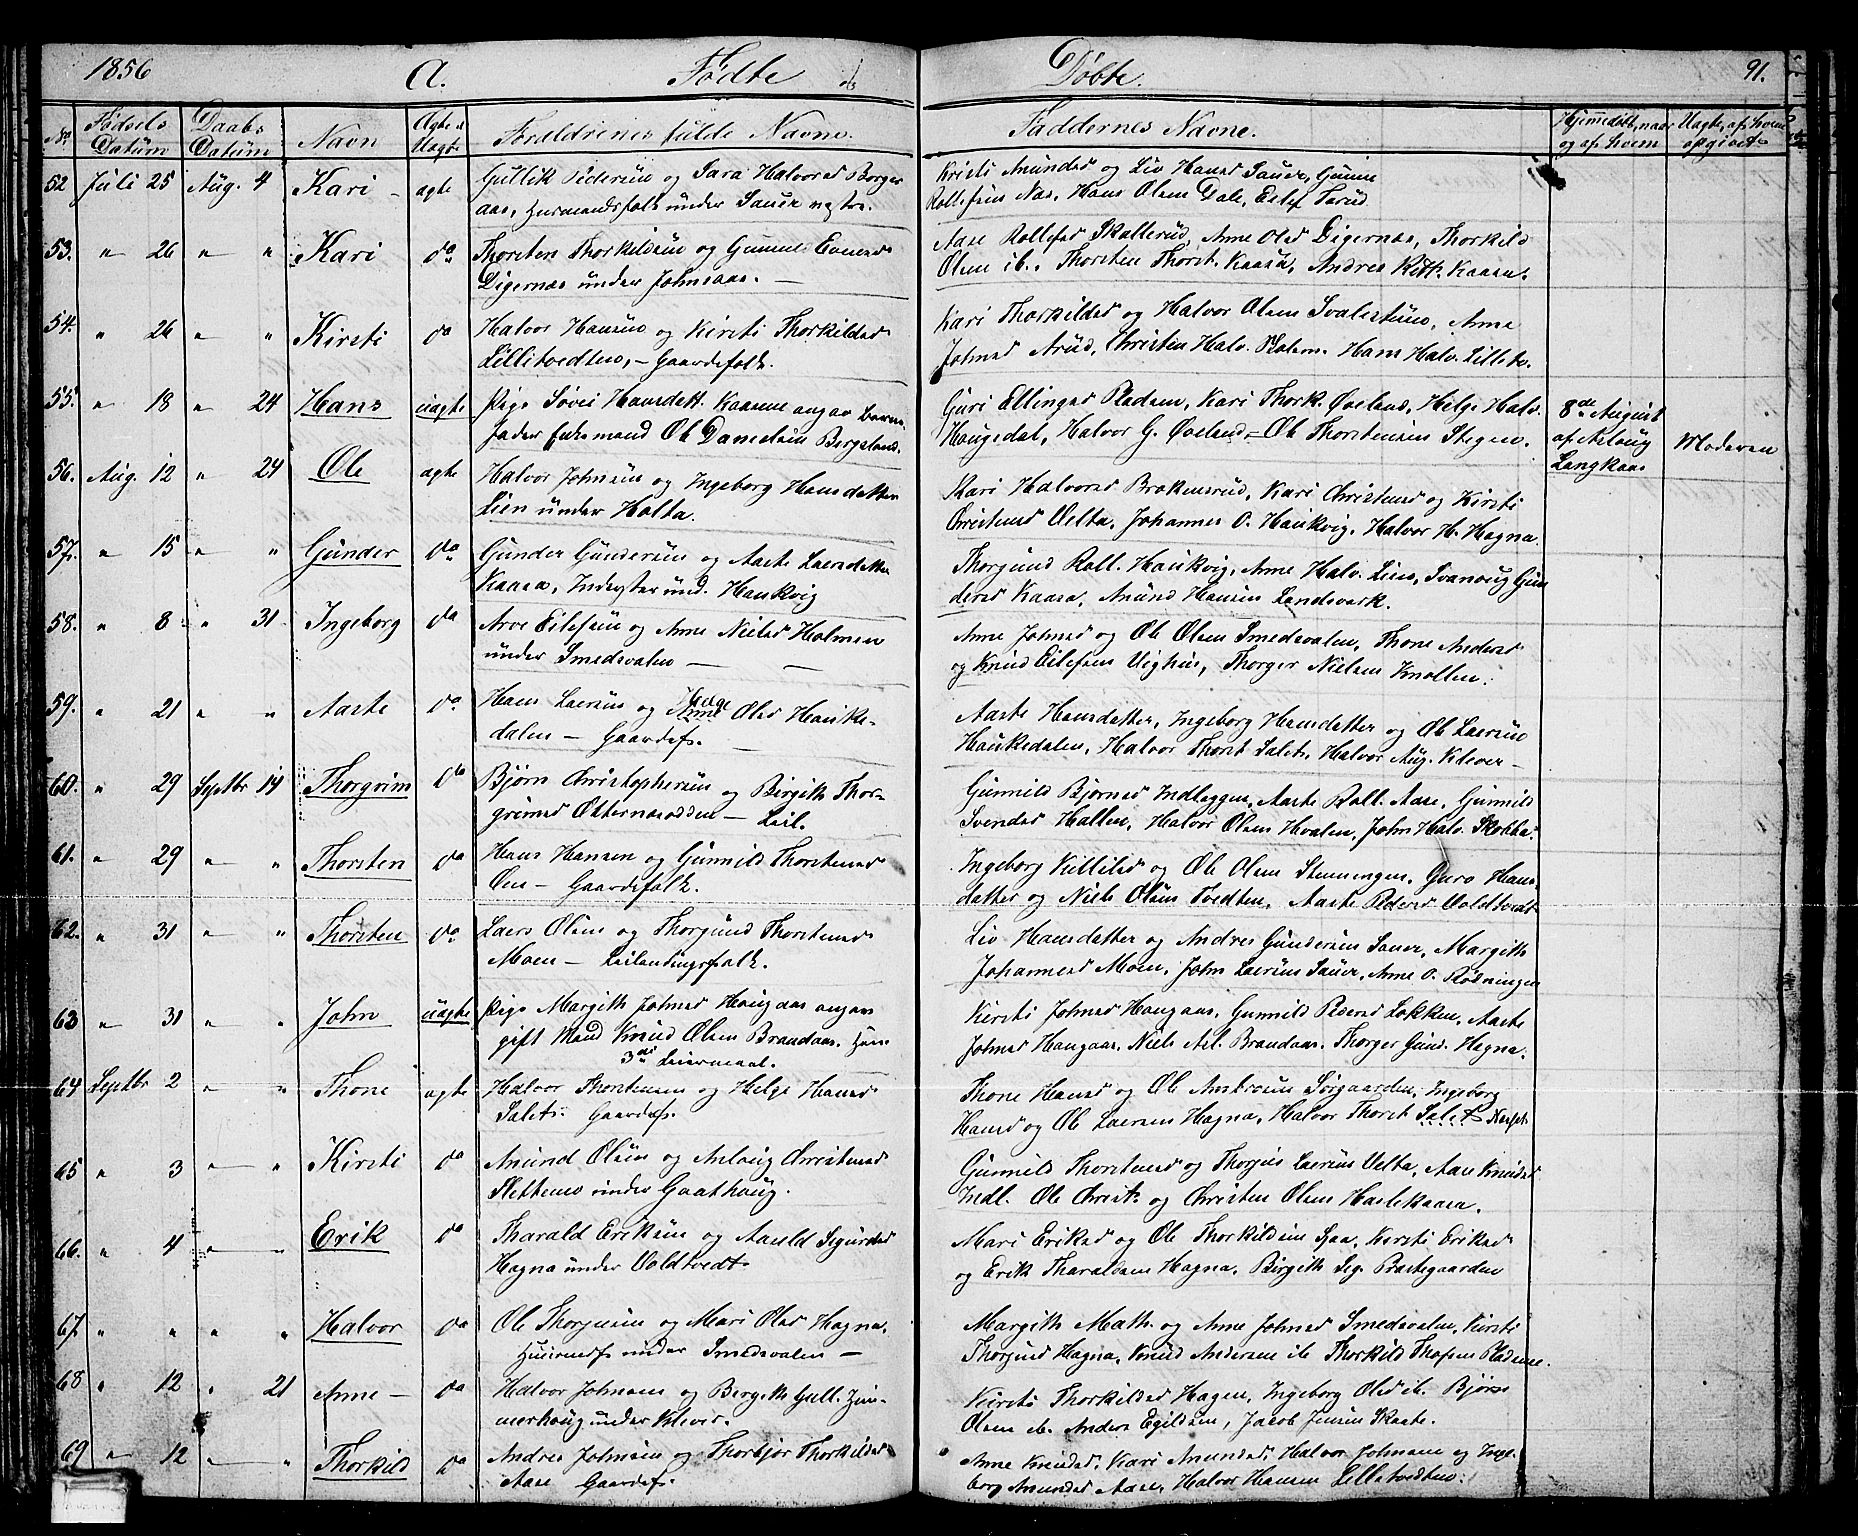 1856 A. Fødte og Døbte. 91.
No. Fødsels Datum Daabs Datum Navn Ægte el. Uægte Forældrenes fulde Navne. Faddernes Navne. Hjemmedøbt, naar og af hvem Uægte, af hvem opgivet
52 Juli 25 Aug. 4 Kari ægte Gullik Pedersen og Sara Halvorsd Borger
aas, Huusmandsfolk under Sauer vestre.
Kristi Amundsd og Liv Hansd Sauer, Gunne
Rollefsen Næs, Hans Olsen Dale, Eilef Tarud
53. " 26 " " Kari do Thorsten Thorkildsen og Gunnild Evensd
Digernæs under Johnsaas. —
Aase Rollefsd Skallerud, Anne Olsd Digernæs, Thorkild
Olsen ib., Thorsten Thorst. Kaasa, Andres Kaasa.
54. " 26 " " Kirsti do Halvor Hansen og Kirsti Thorkildsd
Lilletvedten, — Gaardefolk.
Kari Thorkildsd og Halvor Olsen Svalestuen, Anne
Johnsd Aarud, Christen Halv. Hans Halv. Lilletv.
55. " 18 " 24 Hans uægte Pige Sövei Hansdatt. Kaasene angav Barne-
fader Enkemand Ole Danielsen Bergeland.
Guri Ellingsd Pladsen, Kari Thork. Øveland, Helge Halv.
Haugedal, Halvor G. Øveland, Ole Thorstensen Stegen.
8de August
af Aslaug
Langkaas
Moderen
56. Aug. 12 " 24 Ole ægte Halvor Johnsen og Ingeborg Hansdatter
Lien under Holta.
Kari Halvorsd Brokensrud, Kari Christensd og Kirsti
Christensd Velta, Johannes O. Haukvig, Halvor H. Hagna.
57. " 15 " " Gunder do Gunder Gundersen og Aaste Laersdatter
Kaasa, Inderster und. Haukvig
Thorgund Roll. Haukvig, Anne Halv. Lien, Svanaug Gun
dersd Kaasa, Amund Hansen Landsverk.
58. " 8 " 31 Ingeborg do Arve Eilefsen og Anne Nielsd Holmen
under Smedsvalen —
Anne Johnsd og Ole Olsen Smedsvalen, Thone Andersd
og Knud Eilefsen Vighus, Thorger Nielsen Knollen.
59. " 21 " " Aaste do Hans Laersen og Helge Anne Olsd Hauke-
dalen — Gaardefs. —
Aaste Hansdatter, Ingeborg Hansdatter og Ole Laersen
Haukedalen, Halvor Thorst Salet, Halvor Aug. Klever —
60. " 29 Septbr 14 Thorgrim do Bjørn Christophersen og Birgith Thor-
grimsd Otternæsodden — Leil.
Gunnild Bjørnsd Indleggen, Aaste Roll. Aase, Gunnild
Svendsd Hallen, Halvor Olsen Hvalen, John Halv. Skobba.
61. " 29 " " Thorsten do Hans Hansen og Gunnild Thorstensd
Øen — Gaardefolk.
Ingeborg Killilsd og Ole Olsen Stenningen, Guro Hans-
datter og Niels Olsen Tvedten, Aaste Pedersd Voldtvedt
62. " 31 " " Thorsten do Laers Olsen og Thorgund Thorstensd
Moen — Leilendingsfolk.
Liv Hansdatter og Andres Gundersen Sauer, Margith
Johannesd Moen, John Laersen Sauer, Anne O. Rødningen
63 " 31 " " John uægte Pige Margith Johnsd Haugaas angav
gift Mand Knud Olsen Brandaas. Hun
3die Leiermaal.
Kirsti Johnsd Haugaas, Gunnild Pedersd Løkken, Aaste
Johnsd Haugaas, Niels Asl. Brandaas, Thorger Gund. Hegna.
64 Septbr 2 " " Thone ægte Halvor Thorstensen og Helge Hansd
Salet. Gaardefs.
Thone Hansd og Ole Ambrosen Sørgaarden, Ingeborg
Hansd og Ole Laersen Hagna, Halvor Thorst Salet
65 " 3 " " Kirsti do Amund Olsen og Aslaug Christensd
Slettemo under Gaathaug.
Gunnild Thorstensd og Thorjus Laersen Velta, Aase Knudsd
Indl. Ole Christ. og Christen Olsen Haslekaasa.
66. " 4 " " Erik do Tharald Eriksen og Aasild Sigurdsd
Hagna under Voldtvedt.
Mari Eriksd og Ole Thorkildsen Sjaa, Kirsti Eriksd
og Erik Tharaldsen Hagna, Birgith Sig. Prestegaarden
67. " " " " Halvor do Ole Thorjusen og Mari Olsd Hagna,
Huusmdf. under Smedsvalen —
Margith Math. og Anne Johnsd Smedsvalen, Kirsti
Thorjusd Hagna, Knud Andersen ib Thorkild Thofsen Pladsene.
68 " 12 " 21 Anne do Halvor Johnsen og Bergith Gull. Him-
merhaug under Klever.
Kirsti Thorkildsd Hagen, Ingeborg Olsd ib. Bjørn
Olsen ib. Anders Egildsen, Jacob Jensen Skaate.
69 " 12 " " Thorkild do Andres Johnsen og Thorbjør Thorkildsd
Aase Gaardefs.
Anne Knudsd, Kari Amundsd, Halvor Johnsen og Inge-
borg Amundsd Aase, Halvor Hansen Lilletvedten.